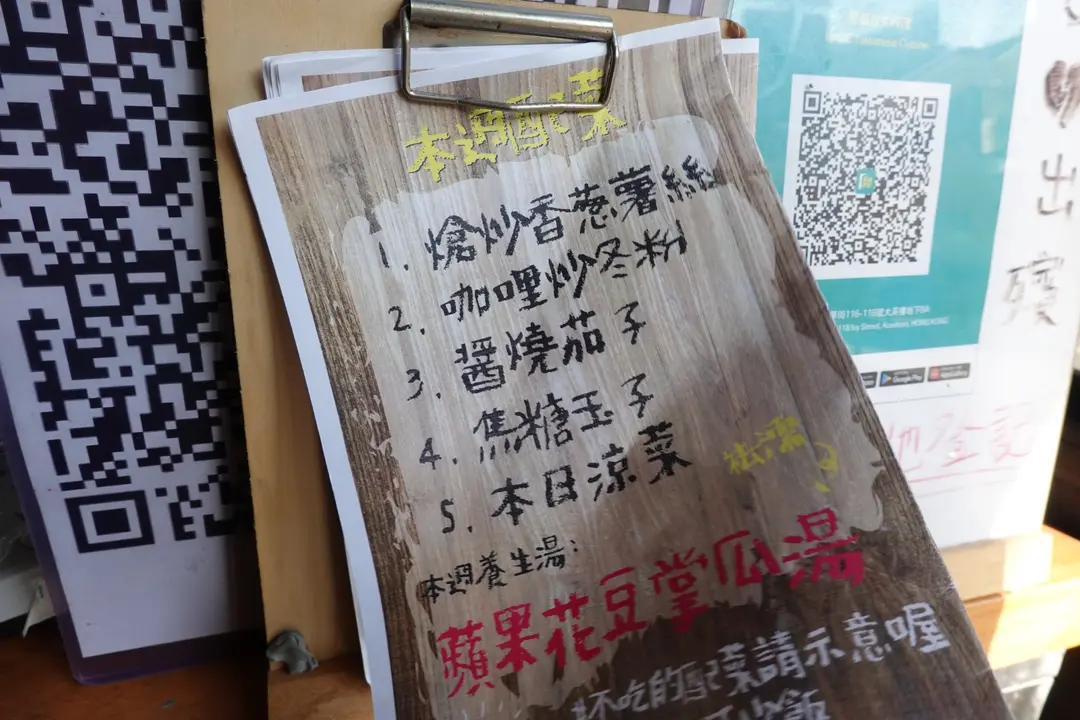 本週配菜
1. 熗炒香蔥薯絲
2. 咖哩炒冬粉
3. 醬燒茄子
4. 焦糖玉子
5. 本日涼菜
祛濕
本週養生湯:
蘋果花豆掌瓜湯
不吃的配菜請示意喔
少飯
出
Google Play
登記